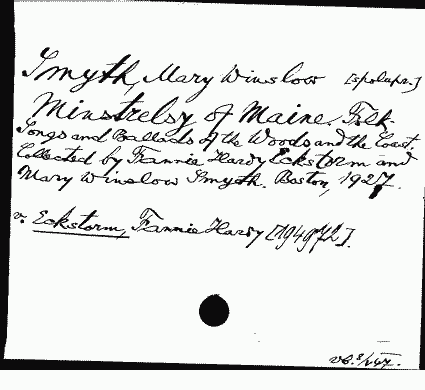 Smyth, Mary Winslow [spolupr.]
Minstrelsy of Maine. Folk-
Songs and Ballads of the Woods and the Coast.
Collected by Fannie Hardy Eckstorm and
Mary Winslow Smyth. Boston, 1927.
v. Eckstorm, Fannie Hardy [194972].